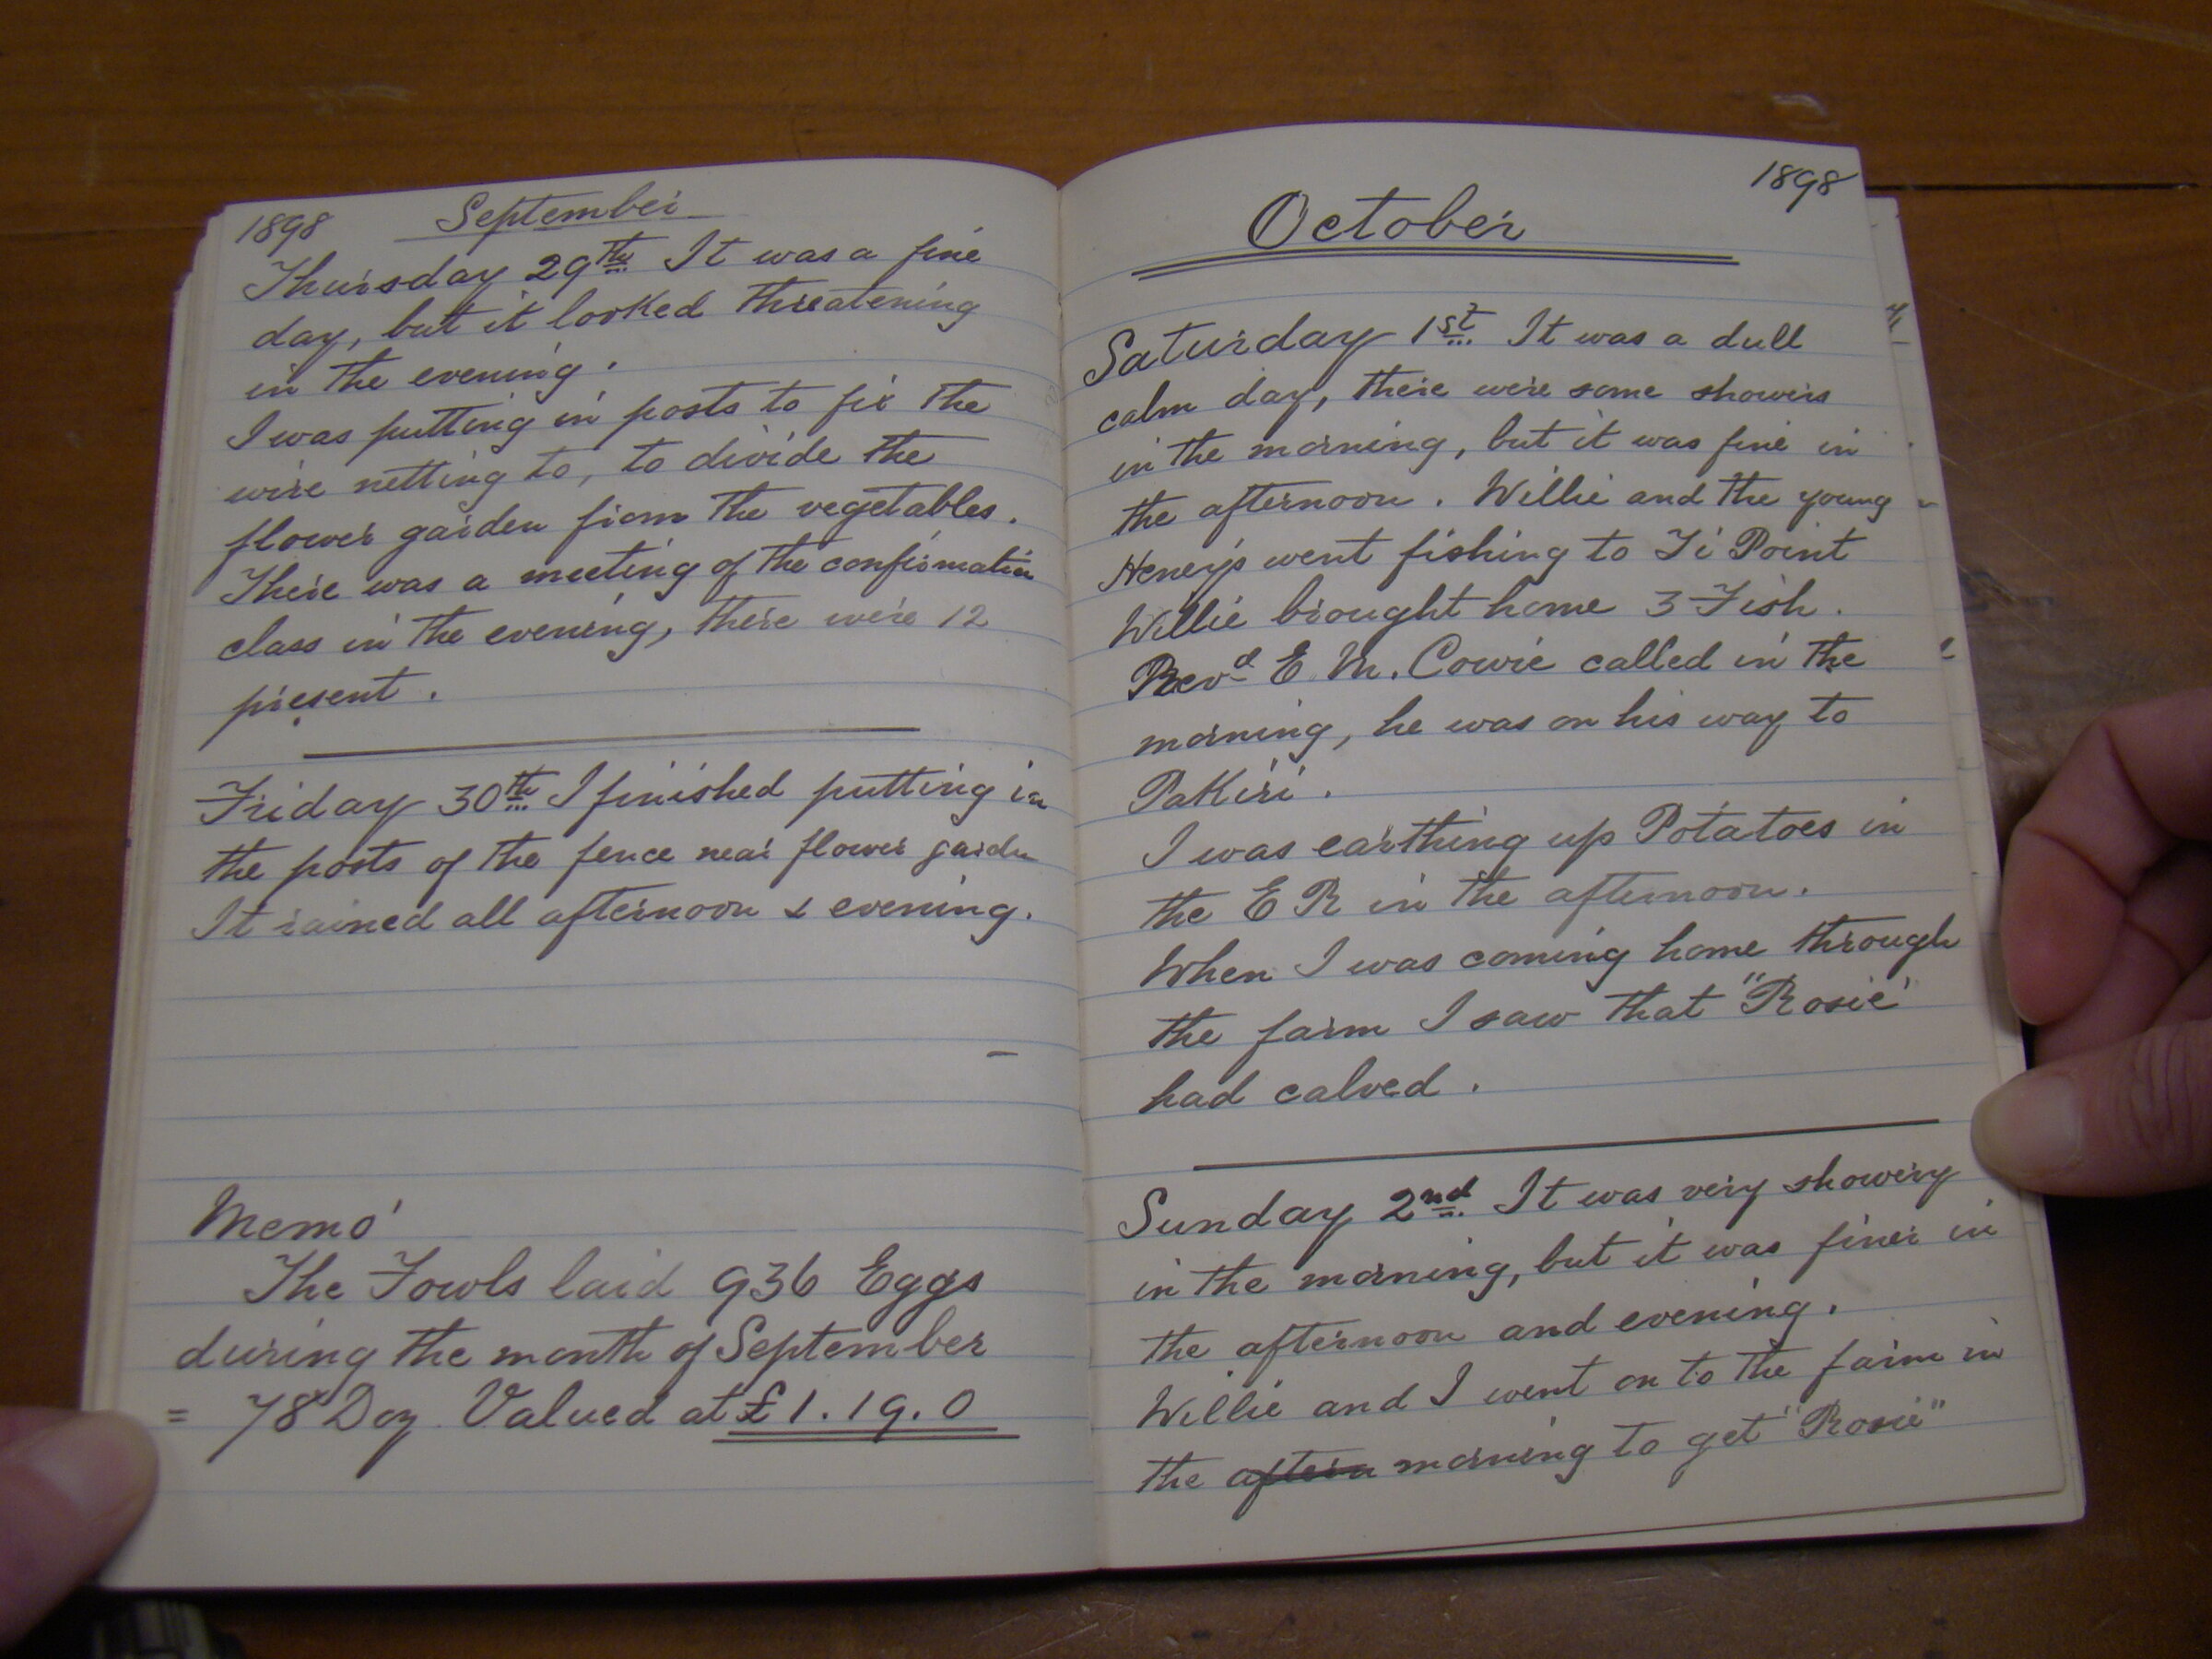 1898 September
Thursday 29th It was a fine
day, but it looked threatening
in the evening.
I was putting in posts to fix the
wire netting to, to divide the
flower garden from the vegetables.
There was a meeting of the confirmation
class in the evening, there were 12
present.
Friday 30th I finished putting in
the posts of the fence near flower garden
It rained all afternoon & evening.
Memo
The Fowls laid 936 Eggs
during the month of September
= 78 Doz Valued at £1.19.0
1898
October
Saturday 1st It was a dull
calm day, there were some showers
in the morning, but it was fine in
the afternoon. Willie and the young
went fishing to Ti Point
Willie brought home 3 Fish.
Revd E M. Cowie called in the
morning, he was on his way to
Pakiri.
I was earthing up Potatoes in
the E R in the afternoon.
When I was coming home through
the farm I saw that "Rosie"
had calved.
Sunday 2nd It was very showery
in the morning, but it was finer in
the afternoon and evening.
Willie and I went on to the farm in
the aftern morning to get "Rosie"